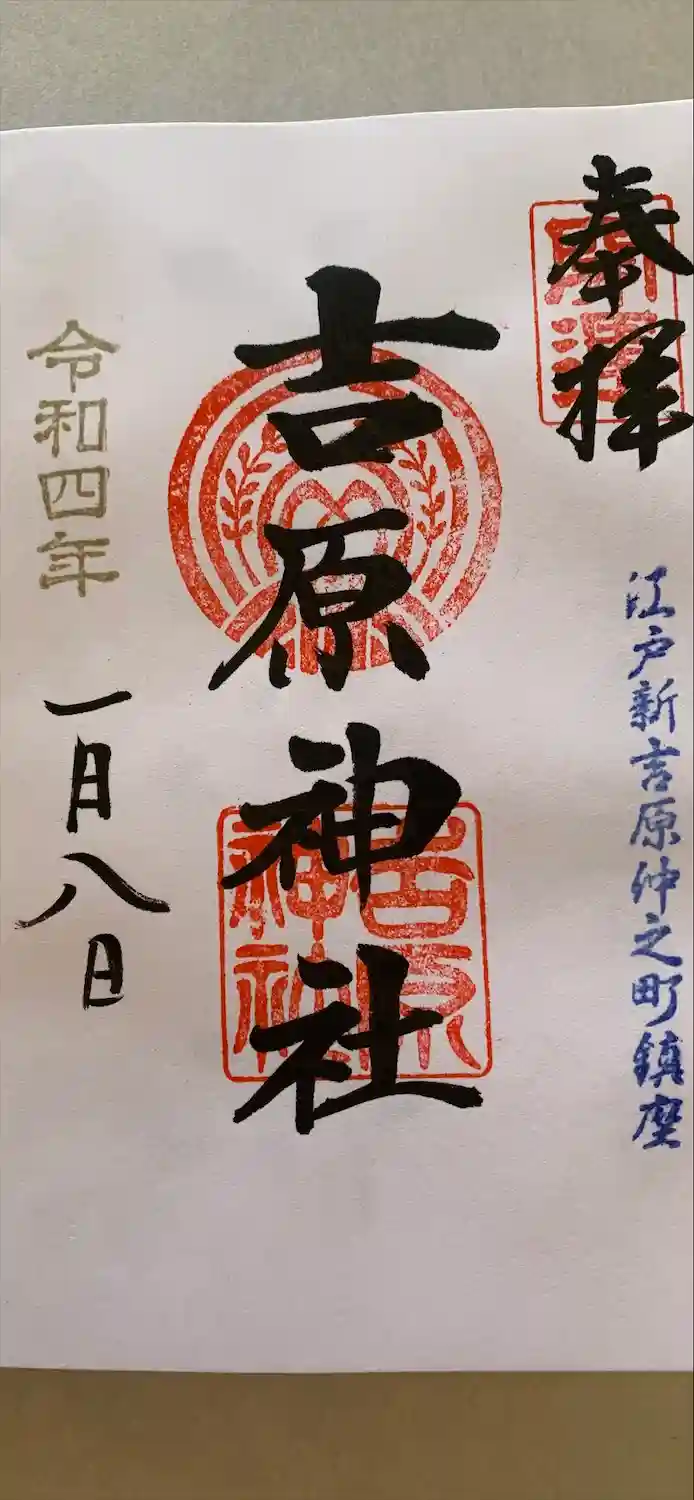 奉拝
開運
江戸新吉原仲之町鎮座
吉原神社
吉原
神社
令和四年
一月八日